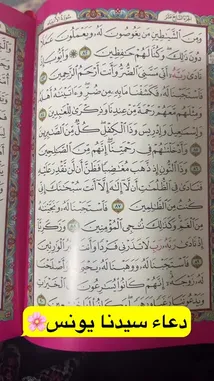 وَمِنَ ٱلشَّيَٰطِينِ مَن يَغُوصُونَ لَهُۥ وَيَعْمَلُونَ عَمَلًا
دُونَ ذَٰلِكَ وَكُنَّا لَهُمْ حَٰفِظِينَ ٨٢ وَأَيُّوبَ إِذْ
نَادَىٰ رَبَّهُۥٓ أَنِّى مَسَّنِىَ ٱلضُّرُّ وَأَنتَ أَرْحَمُ ٱلرَّٰحِمِينَ ٨٣
فَٱسْتَجَبْنَا لَهُۥ فَكَشَفْنَا مَا بِهِۦ مِن ضُرٍّ وَءَاتَيْنَٰهُ أَهْلَهُۥ
وَمِثْلَهُم مَّعَهُمْ رَحْمَةً مِّنْ عِندِنَا وَذِكْرَىٰ لِلْعَٰبِدِينَ ٨٤
وَإِسْمَٰعِيلَ وَإِدْرِيسَ وَذَا ٱلْكِفْلِ كُلٌّ مِّنَ ٱلصَّٰبِرِينَ ٨٥
وَأَدْخَلْنَٰهُمْ فِى رَحْمَتِنَآ إِنَّهُم مِّنَ ٱلصَّٰلِحِينَ ٨٦
وَذَا ٱلنُّونِ إِذ ذَّهَبَ مُغَٰضِبًا فَظَنَّ أَن لَّن نَّقْدِرَ عَلَيْهِ
فَنَادَىٰ فِى ٱلظُّلُمَٰتِ أَن لَّآ إِلَٰهَ إِلَّآ أَنتَ سُبْحَٰنَكَ إِنِّى
كُنتُ مِنَ ٱلظَّٰلِمِينَ ٨٧ فَٱسْتَجَبْنَا لَهُۥ وَنَجَّيْنَٰهُ
مِنَ ٱلْغَمِّ وَكَذَٰلِكَ نُۨجِى ٱلْمُؤْمِنِينَ ٨٨ وَزَكَرِيَّآ
إِذْ نَادَىٰ رَبَّهُۥ رَبِّ لَا تَذَرْنِى فَرْدًا وَأَنتَ خَيْرُ ٱلْوَٰرِثِينَ
٨٩ فَٱسْتَجَبْنَا لَهُۥ وَوَهَبْنَا لَهُۥ يَحْيَىٰ وَأَصْلَحْنَا
لَهُۥ زَوْجَهُۥٓ إِنَّهُمْ كَانُوا۟ يُسَٰرِعُونَ فِى ٱلْخَيْرَٰتِ
دعاء سيدنا يونس🌸